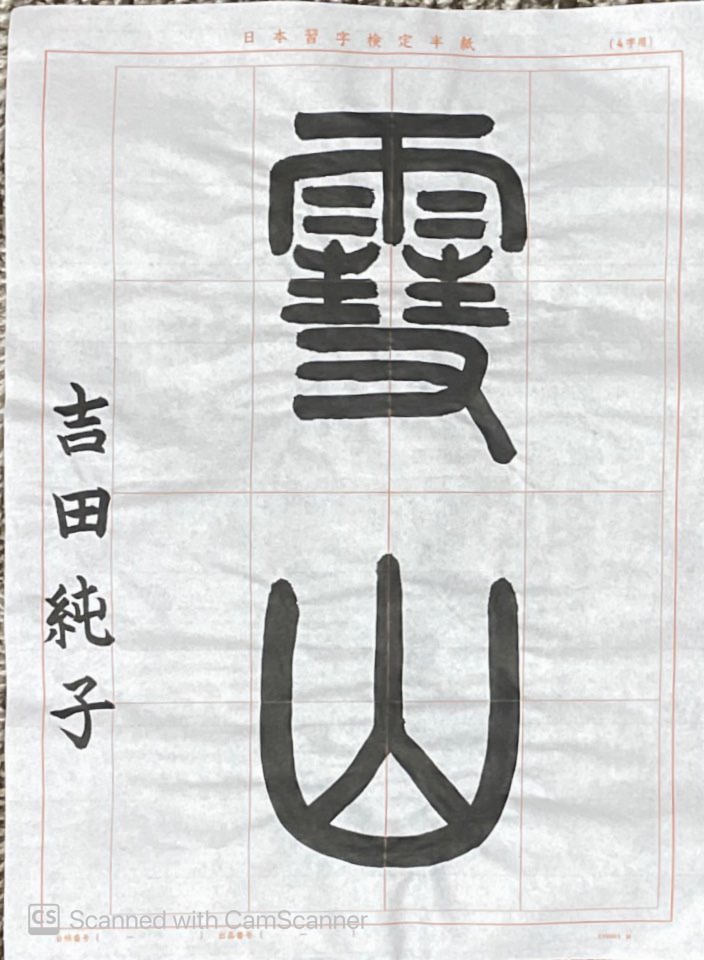 日本習字検定半紙
(4字用)
雪山
吉田純子
CS Scanned with CamScanner